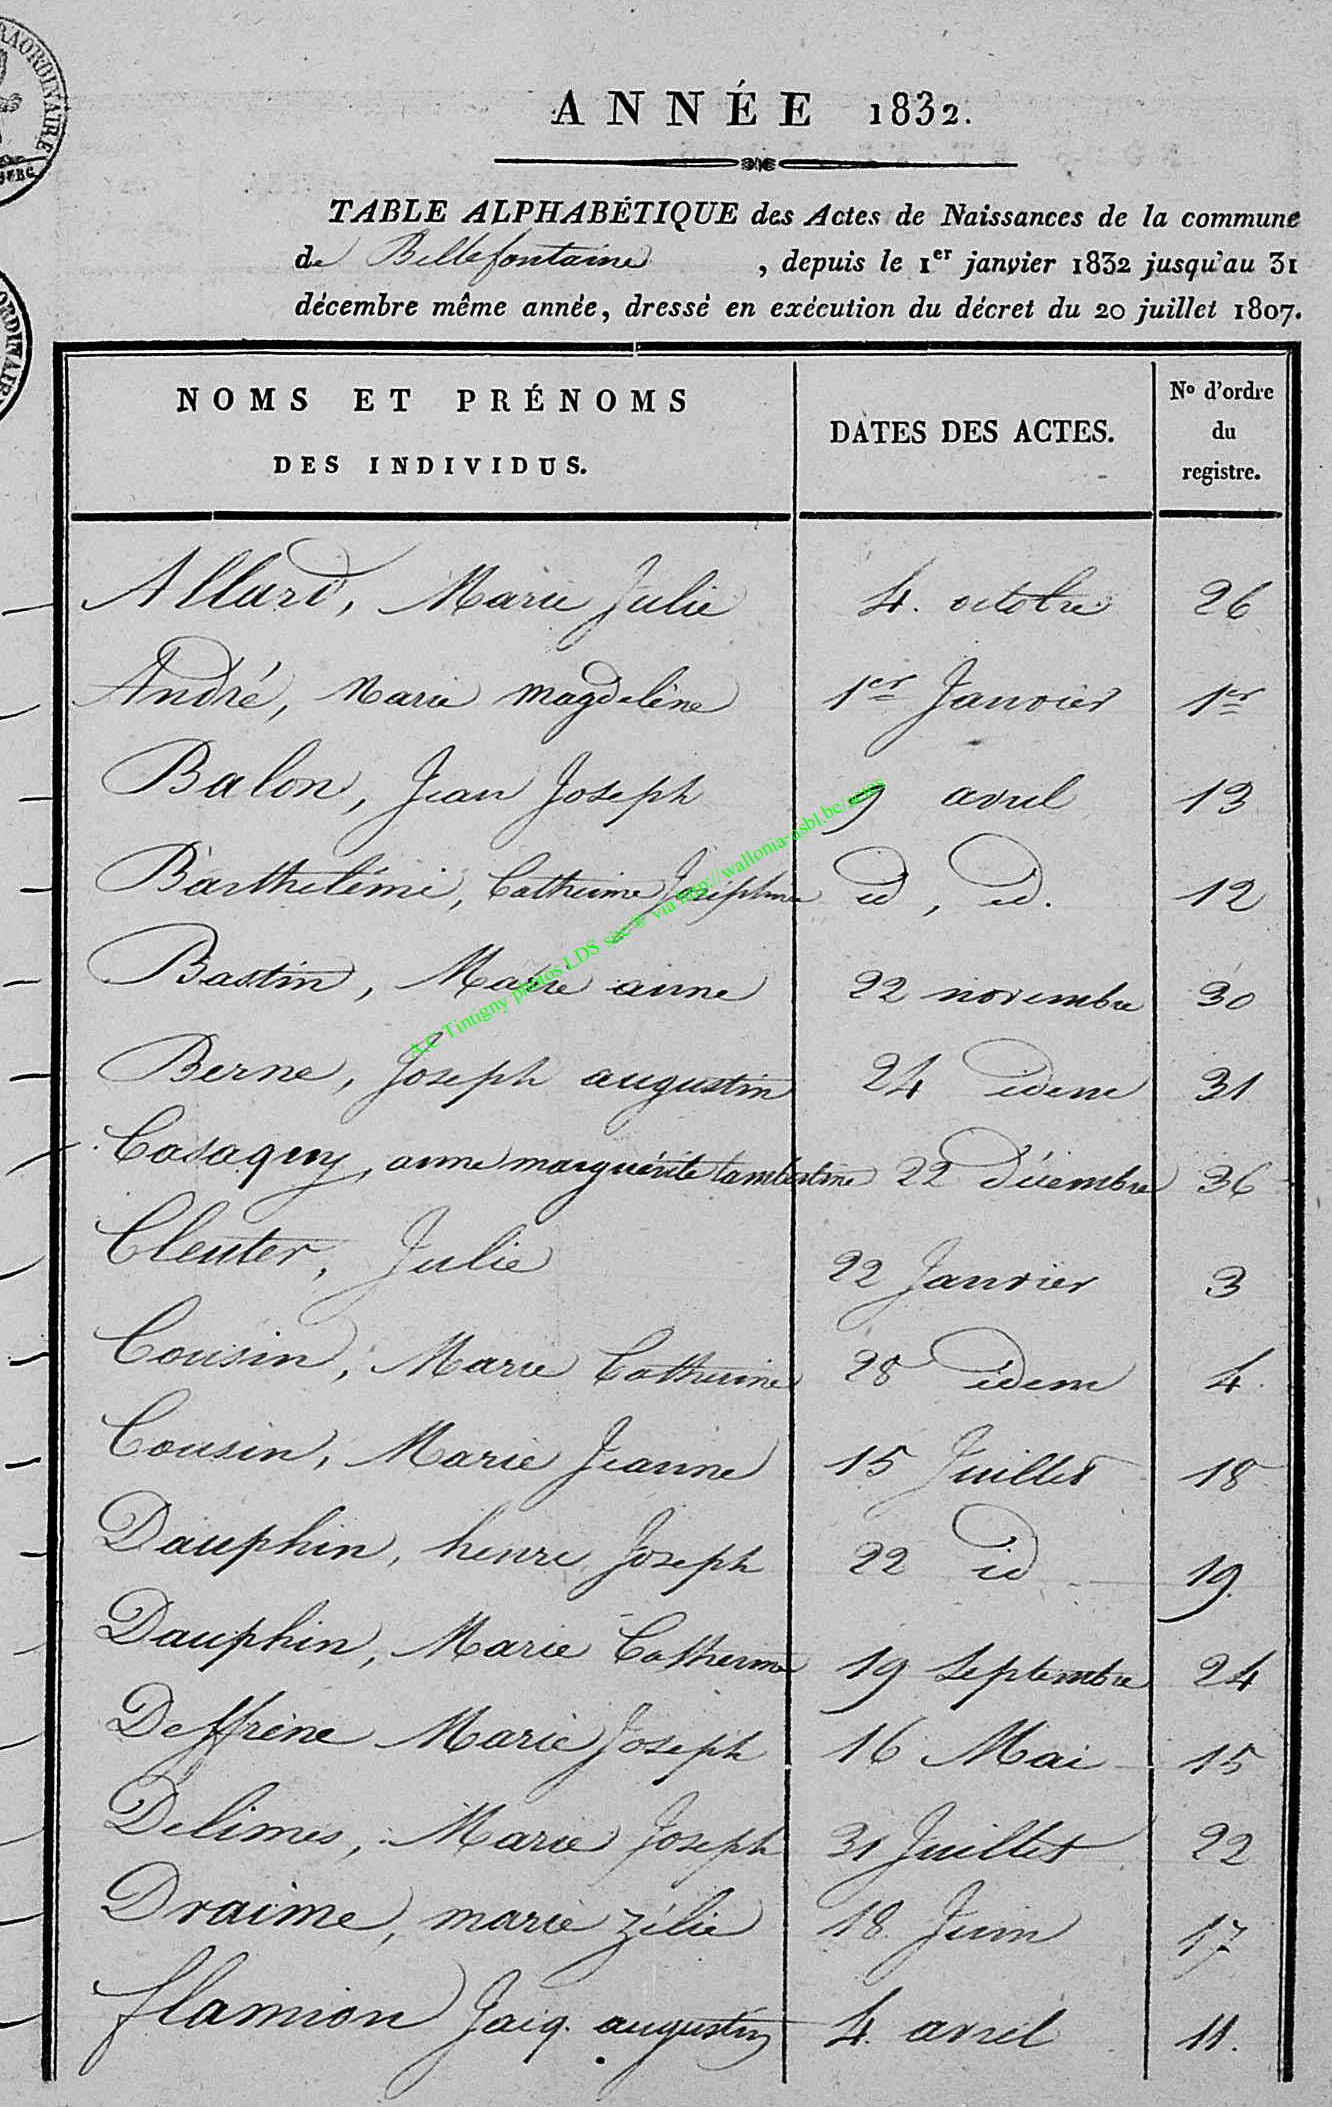 RAORDINAIRE
ORDINAIR
ANNÉE 1832.
TABLE ALPHABÉTIQUE des Actes de Naissances de la commune
de Bellefontaine , depuis le 1er janvier 1832 jusqu'au 31
décembre même année, dressé en exécution du décret du 20 juillet 1807.
NOMS ET PRÉNOMS DES INDIVIDUS. DATES DES ACTES. No d'ordre du registre.
Allard, Marie Julie 4. octobre 26
André, Marie Magdelène 1er Janvier 1er
Balon, Jean Joseph 9 avril 13
Barthélémi, Catherine Joséphine id, id. 12
Bastin, Marie anne 22 novembre 30
Berne, Joseph augustin 24 idem 31
Casaquy, anne marguérite lambertine 22 Décembre 36
Cleuter, Julie 22 Janvier 3
Cousin, Marie Catherine 28 idem 4
Cousin, Marie Jeanne 15 Juillet 18
Dauphin, henri Joseph 22 id 19.
Dauphin, Marie Catherine 19 Septembre 24
Deffrène Marie Joseph 16 Mai 15
Delimes, Marie Joseph 31 Juillet 22
Draime, marie zélie 18 Juin 17
flamion Jacq. augustin 4. avril 11.
A.C Tintigny photos LDS site © via http://wallonia-asbl.be/actes